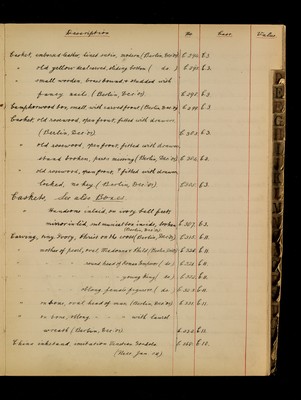 Description No Case Value
Casket, embossed leather, lined satin, modern (Berlin, Dec 07) E.296 E.3.
" old yellow enamelled, sliding bottom ( do ) E.296 E.3.
" small wooden, brass bound & studded with
fancy nails (Berlin, Dec 07). E.298 E.3.
" Camphorwood box, small with carved front (Berlin Dec 07) E.299 E.3.
Casket old rosewood, open front, fitted with drawers
(Berlin, Dec 07). E.303 E.3.
" old rosewood, open front, fitted with drawers
stand broken, pieces missing (Berlin, Dec 07) E.304 E.3.
" old rosewood, open front, fitted with drawers
locked, no key (Berlin, Dec 07). E.305 E.3.
Caskets, see also Boxes
" Handsome inlaid, on ivory ball feet
mirror in lid, and musical box inside, broken E.307 E.3.
(Berlin, Dec 07).
Carving, ivory, Christ on the cross (Berlin, Dec 07) E.11.
" mother of pearl, oval, Madonna & Child (Berlin, Dec 07) E.328 E.11.
" round head of Roman Emperor ( do ) E.329 E.11.
" young King ( do ) E.11.
" oblong, female figures ( do ) E.11.
" in bone, oval head of man (Berlin Dec 07) E.331 E.11.
" in bone, oblong " " with laurel
wreath (Berlin, Dec 07). E.11.
China inkstand, imitation
(Nice Jan 08) E.10.